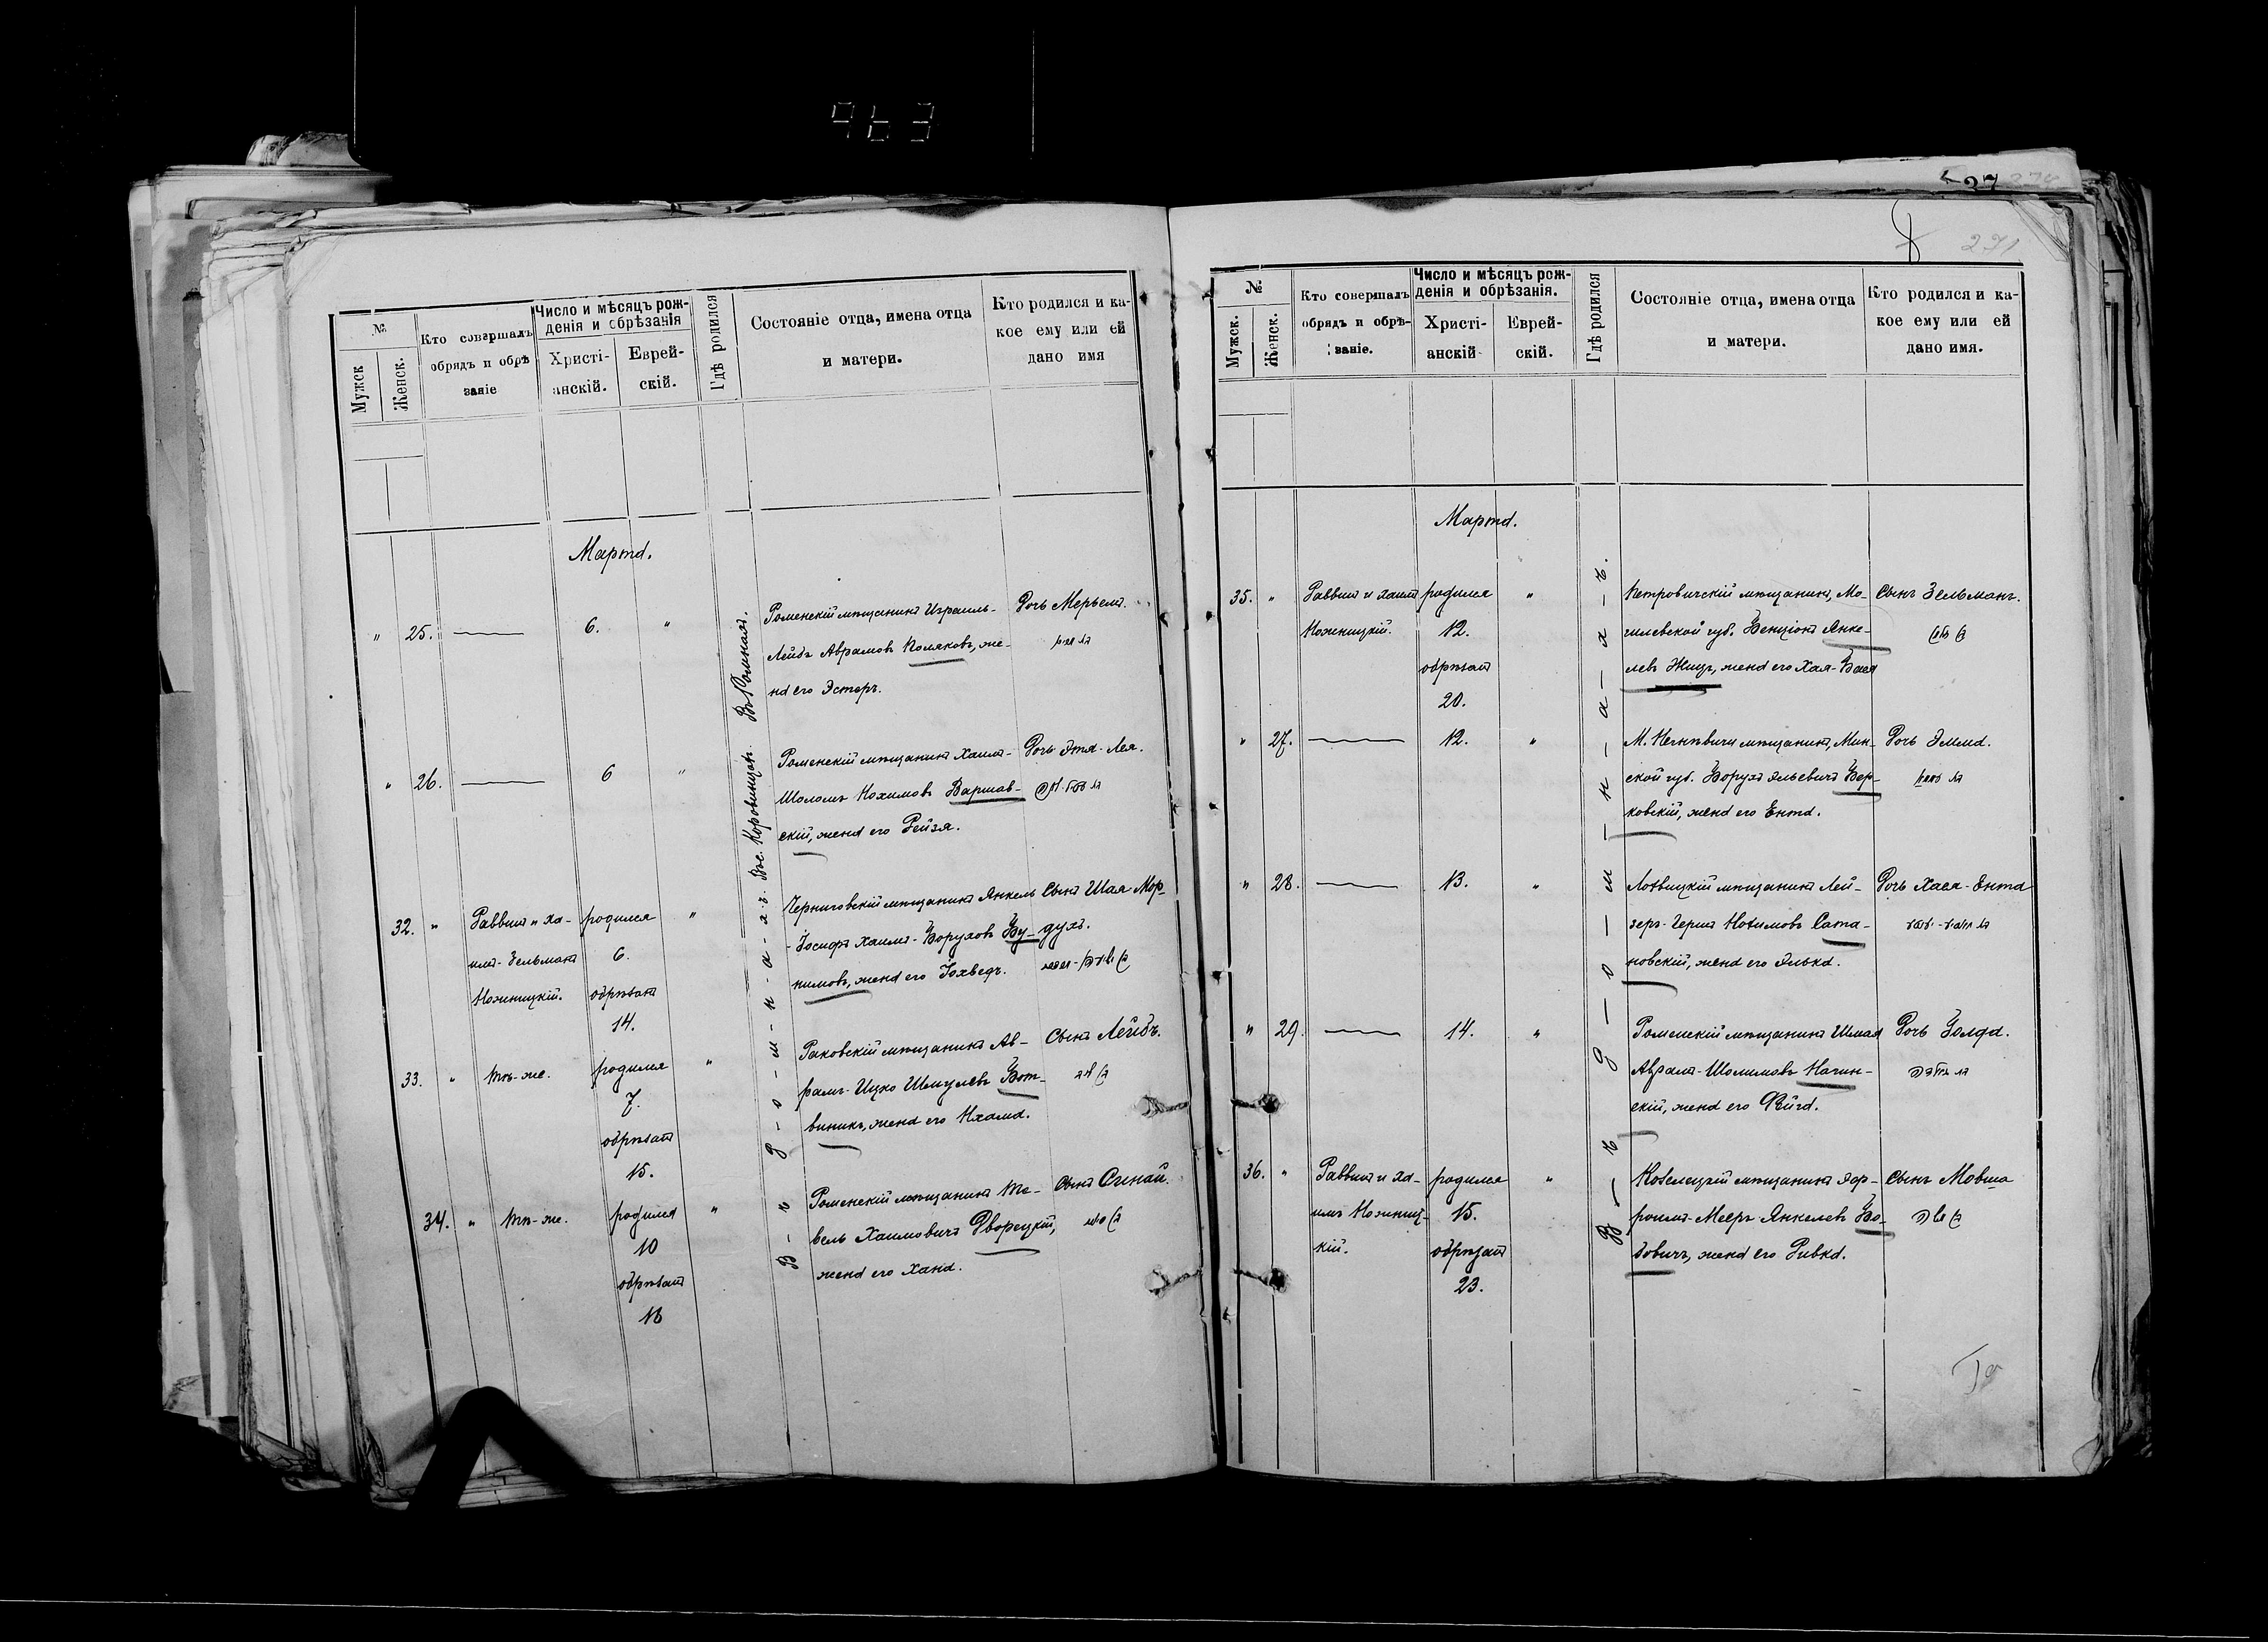 963
№
Мужск
Женск.
Кто совершалъ
обрядъ и обрѣ
заніе
Число и мѣсяцъ рож-
денія и обрѣзанія
Христі-
анскій.
Еврей-
скій.
Гдѣ родился
Состояніе отца, имена отца
и матери.
Кто родился и ка-
кое ему или ей
дано имя
Марта.
" 25. 6. "
Въ Ромнахъ.
Роменскій мѣщанинъ Израиль-
Лейбъ Аврамовъ Поляковъ, же-
на его Эстеръ.
Дочь Меръемъ.
" 26. 6 "
Въ с. Коровинцахъ.
Роменскій мѣщанинъ Хаимъ-
Шоломъ Нохимовъ Варшав-
скій, жена его Рейзя.
Дочь Этя-Лея.
32. "
Раввинъ и Ха-
имъ-Зельманъ
Ножницкій.
родился
6.
обрѣзанъ
14.
"
Въ Ромнахъ
Черниговскій мѣщанинъ Янкель
-Іосифъ Хаимъ-Боруховъ Бу-
нимовъ, жена его Іохведъ.
Сынъ Шая Мор-
духъ.
33. " тѣ-же.
родился
7.
обрѣзанъ
15.
"
Раковскій мѣщанинъ Ав-
рамъ-Ицко Шмулевъ Бот-
виникъ, жена его Нхама.
Сынъ Лейбъ.
34. " тѣ-же.
родился
10
обрѣзанъ
18
"
Роменскій мѣщанинъ Те-
вель Хаимовичъ Дворецкій,
жена его Хана.
Сынъ Синай.
27
271
№
Мужск.
Женск.
Кто совершалъ
обрядъ и обрѣ-
заніе.
Число и мѣсяцъ рож-
денія и обрѣзанія.
Христі-
анскій
Еврей-
скій.
Гдѣ родился
Состояніе отца, имена отца
и матери.
Кто родился и ка-
кое ему или ей
дано имя.
Марта.
35. "
Раввинъ и Хаимъ
Ножницкій.
родился
12.
обрѣзанъ
20.
"
Въ Ромнахъ.
Петровичскій мѣщанинъ, Мо-
гилевской губ. Бенціонъ Янке-
левъ Жицъ, жена его Хая-Бася
Сынъ Зельманъ.
" 27. 12. "
М. Негнѣвичи мѣщанинъ, Мин-
ской губ. Борухъ Эльевичъ Бер-
ковскій, жена его Ента.
Дочь Эмма.
" 28. 13. "
Лохвицкій мѣщанинъ Лей-
зеръ-Гершъ Нохимовъ Сата-
новскій, жена его Элька.
Дочь Хася-Энта
" 29. 14. "
Роменскій мѣщанинъ Шмая
Авраамъ-Шолимовъ Нагин-
скій, жена его Фейга.
Дочь Голда.
36. "
Раввинъ и Ха-
имъ Ножниц-
кій.
родился
15.
обрѣзанъ
23.
"
Козелецкій мѣщанинъ Эф-
роимъ-Мееръ Янкелевъ Бо-
бовичъ, жена его Ривка.
Сынъ Мовша